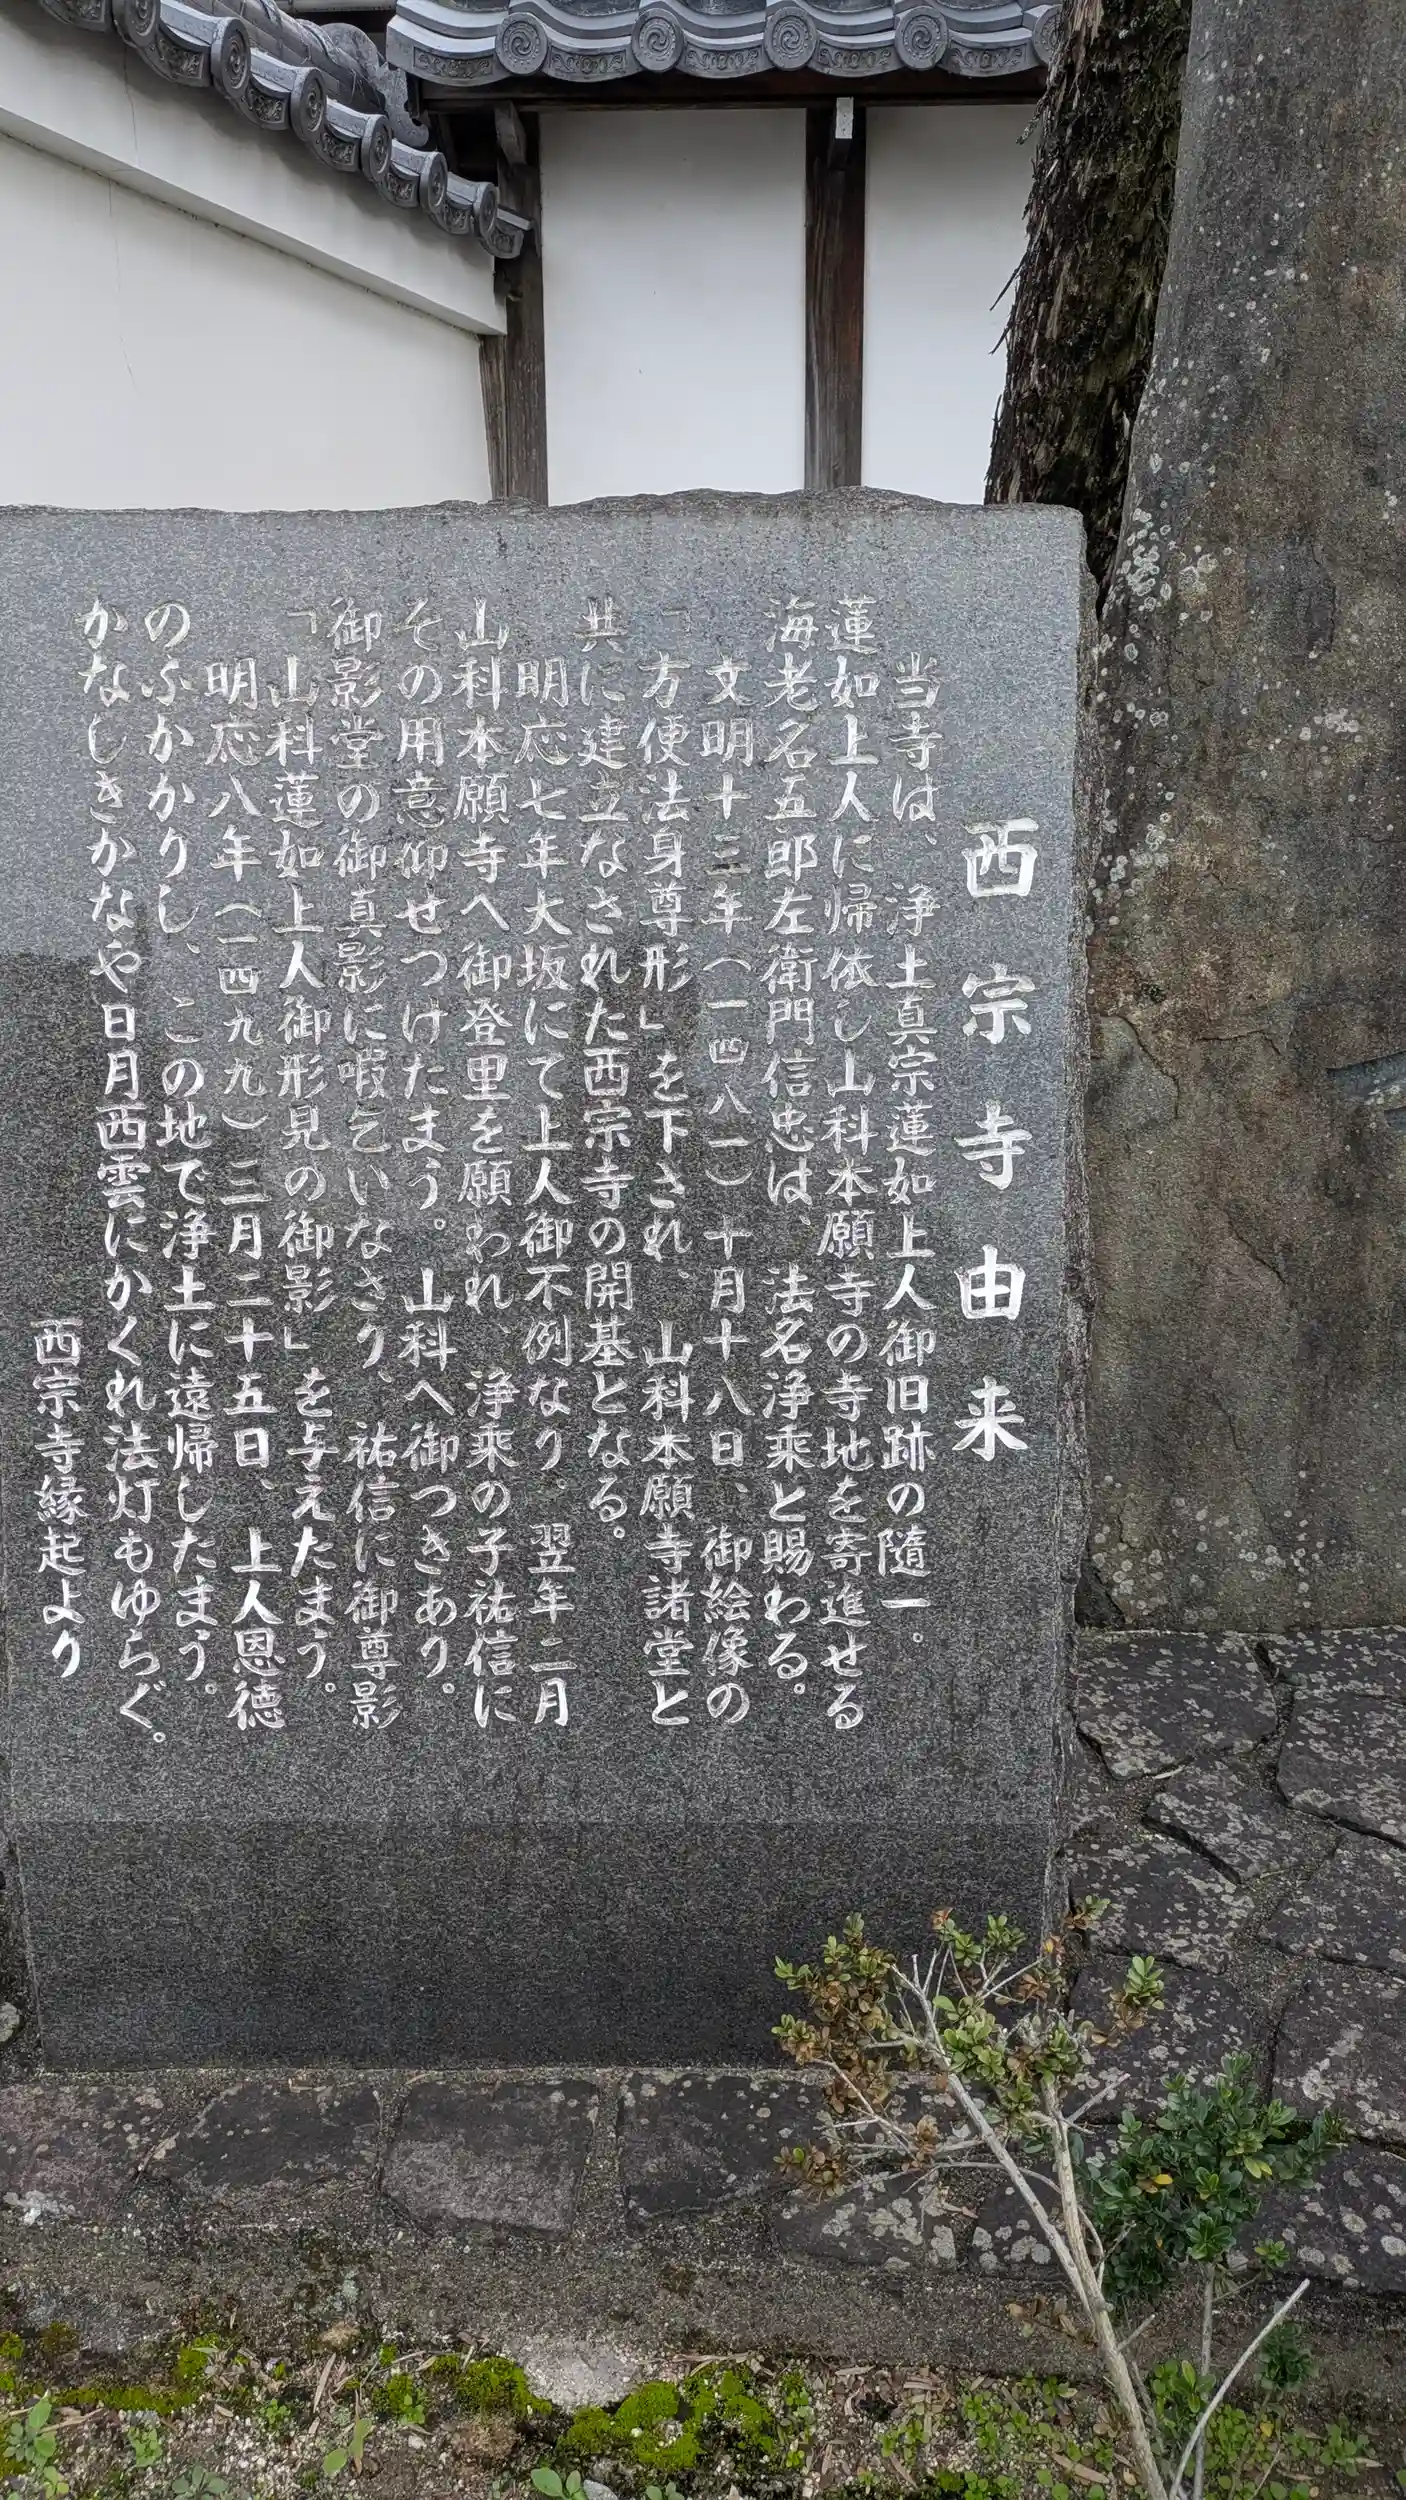 西宗寺由来
当寺は、浄土真宗蓮如上人御旧跡の随一。
蓮如上人に帰依し山科本願寺の寺地を寄進せる
海老名五郎左衛門信忠は、法名浄乗と賜わる。
文明十三年(一四八一)十月十八日、御絵像の
「方便法身尊形」を下され、山科本願寺諸堂と
共に建立なされた西宗寺の開基となる。
明応七年大坂にて上人御不例なり。翌年二月
山科本願寺へ御登里を願われ、浄乗の子祐信に
その用意仰せつけたまう。山科へ御つきあり。
御影堂の御真影に暇乞いなさり、祐信に御尊影
「山科蓮如上人御形見の御影」を与えたまう。
明応八年(一四九九)三月二十五日、上人恩徳
のふかかりし、この地で浄土に遠帰したまう。
かなしきかなや日月西雲にかくれ法灯もゆらぐ。
西宗寺縁起より